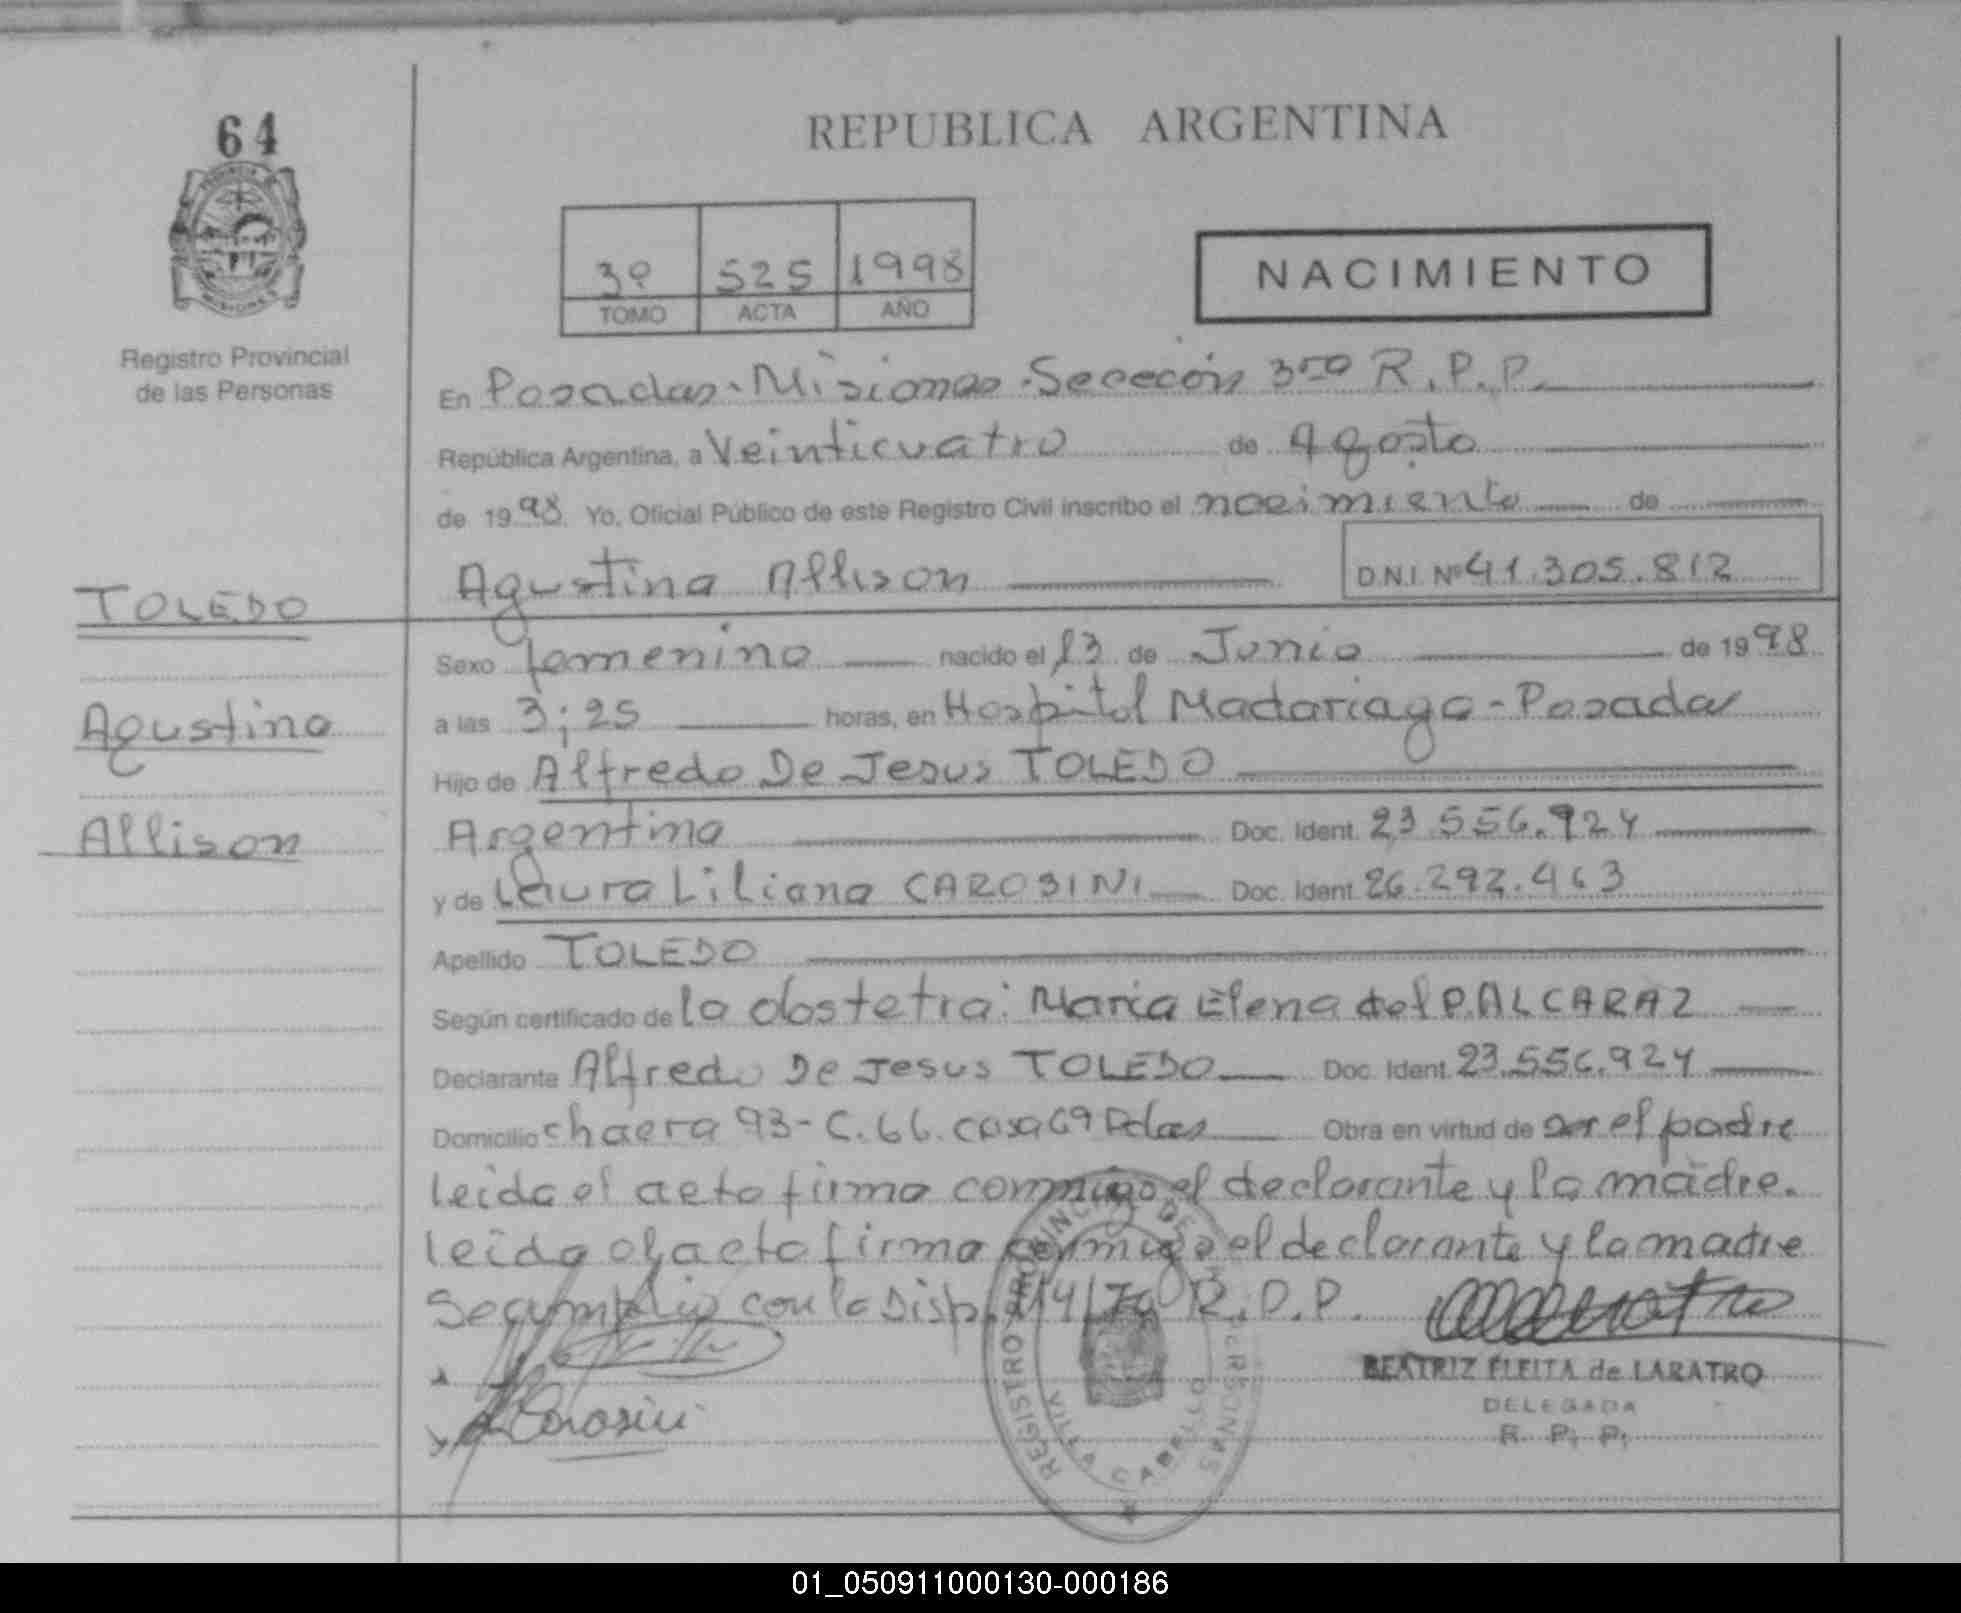 64
REPUBLICA ARGENTINA
3º 525 1998
TOMO ACTA AÑO
NACIMIENTO
Registro Provincial
de las Personas
En Posadas. Misiones. Sección 3ra R.P.P.
República Argentina, a Veinticuatro de Agosto
de 1998 Yo, Oficial Público de este Registro Civil inscribo el nacimiento de
Agustina Allison D.N.I. Nº 41.305.812
TOLEDO
Sexo femenino nacido el 13 de Junio de 1998
Agustina
a las 3;25 horas, en Hospital Madariaga - Posadas
Hijo de Alfredo De Jesus TOLEDO
Allison
Argentina Doc. Ident. 23.556.924
y de Laura Liliana CAROSINI Doc. Ident. 26.292.463
Apellido TOLEDO
Según certificado de la obstetra: María Elena del P. ALCARAZ
Declarante Alfredo De Jesus TOLEDO Doc. Ident. 23.556.924
Domicilio chacra 93 - C. 66. casa 69 Pdas Obra en virtud de ser el padre
leida el acta firma conmigo el declarante y la madre.
leida el acta firma conmigo el declarante y la madre
Se cumplio con la Disp. R.P.P.
Carosini
REGISTRO PROVINCIAL DE LAS PERSONAS
VILLA CABELLO
BEATRIZ FLEITA de LARATRO
DELEGADA
R. P. P.
01_050911000130-000186